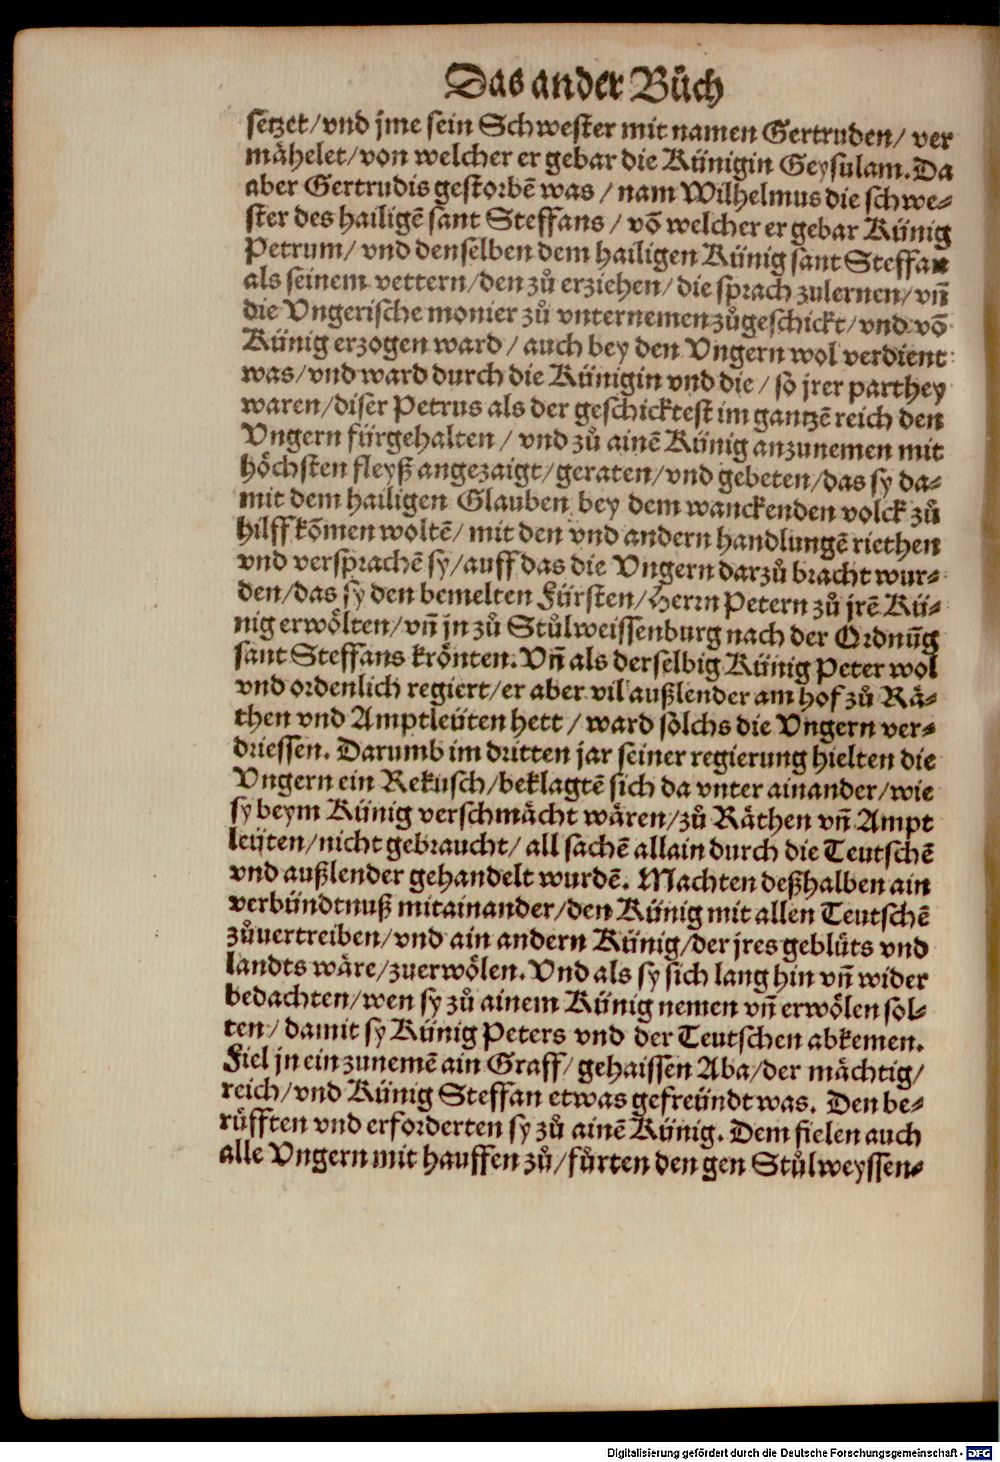 Das ander Bůch
setzet/vnd jme sein Schwester mit namen Gertruden/ ver
mähelet/von welcher er gebar die Künigin Geysulam. Da
aber Gertrudis gestorbẽ was / nam Wilhelmus die schwe⸗
ster des hailigẽ sant Steffans / võ welcher er gebar Künig
Petrum/ vnd denselben dem hailigen Künig sant Steffan
als seinem vettern/den zů erziehen/ die sprach zulernen/ vñ
die Vngerische monier zů vnternemen zůgeschickt/ vnd võ
Künig erzogen ward / auch bey den Vngern wol verdient
was/ vnd ward durch die Künigin vnd die / so jrer parthey
waren/diser Petrus als der geschicktest im gantzẽ reich den
Vngern fürgehalten / vnd zů ainẽ Künig anzunemen mit
höchsten fleyß angezaigt/geraten/vnd gebeten/das sy da⸗
mit dem hailigen Glauben bey dem wanckenden volck zů
hilff kõmen woltẽ/ mit den vnd andern handlungẽ riethen
vnd versprachẽ sy/auff das die Vngern darzů bracht wur⸗
den/das sy den bemelten Fürsten/Herrn Petern zů jrẽ Kü⸗
nig erwölten/vñ jn zů Stůlweissenburg nach der Ordnũg
sant Steffans krönten. Vñ als derselbig Künig Peter wol
vnd ordenlich regiert/er aber vil außlender am hof zů Rä⸗
then vnd Amptleüten hett / ward sölchs die Vngern ver⸗
driessen. Darumb im dritten jar seiner regierung hielten die
Vngern ein Rekusch/beklagtẽ sich da vnter ainander/wie
sy beym Künig verschmächt wären/zů Räthen vñ Ampt
leüten/nicht gebraucht/ all sachẽ allain durch die Teutschẽ
vnd außlender gehandelt wurdẽ. Machten deßhalben ain
verbündtnuß mitainander/den Künig mit allen Teutschẽ
zůuertreiben/vnd ain andern Künig/der jres geblüts vnd
landts wäre/zuerwölen. Vnd als sy sich lang hin vñ wider
bedachten/wen sy zů ainem Künig nemen vñ erwölen sol⸗
ten/ damit sy Künig Peters vnd der Teutschen abkemen.
Fiel jn ein zunemẽ ain Graff/ gehaissen Aba/der mächtig/
reich/vnd Künig Steffan etwas gefreündt was. Den be⸗
růfften vnd erforderten sy zů ainẽ Künig. Dem fielen auch
alle Vngern mit hauffen zů/fürten den gen Stůlweyssen⸗
Digitalisierung gefördert durch die Deutsche Forschungsgemeinschaft - DFG